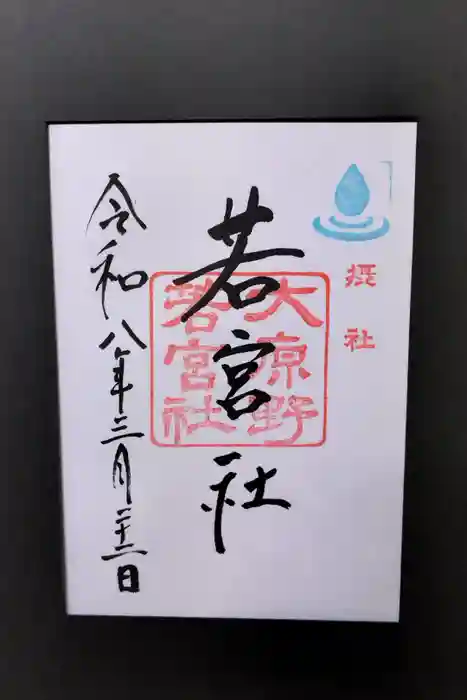 摂社
大原野
若宮社
若宮社
令和八年三月二十二日